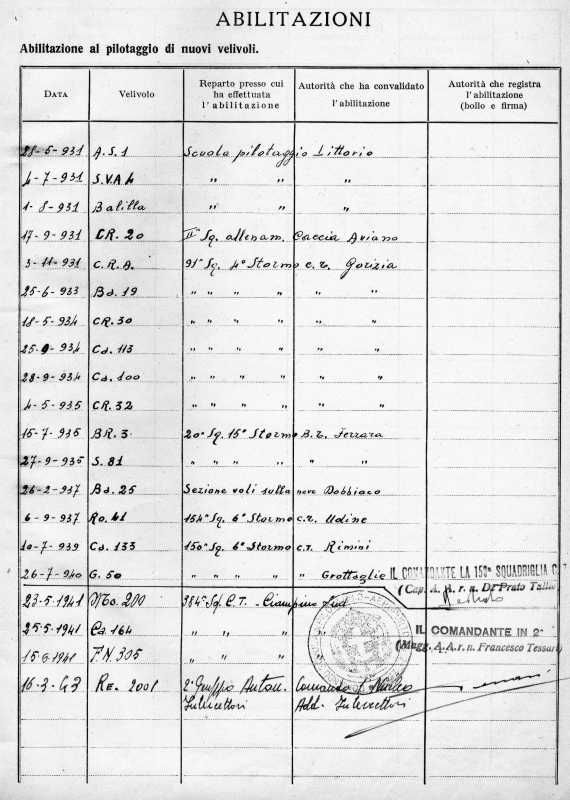 ABILITAZIONI
Abilitazione al pilotaggio di nuovi velivoli.
DATA Velivolo Reparto presso cui ha effettuata l'abilitazione Autorità che ha convalidato l'abilitazione Autorità che registra l'abilitazione (bollo e firma)
28-5-931 A.S.1 Scuola pilotaggio Littorio
4-7-931 S.V.A 4 " " "
1-8-931 Balilla " " "
17-9-931 CR.20 IIª Sq. allenam. Caccia Aviano
3-11-931 C.R.A. 91ª Sq. 4º Stormo c.t. Gorizia
25-6-933 Bd.19 " " " " " "
18-5-934 CR.30 " " " " " "
25-9-934 Cd.113 " " " " " "
28-9-934 Cd.100 " " " " " "
4-5-935 CR.32 " " " " " "
15-7-935 BR.3 20ª Sq. 15º Stormo B.t. Ferrara
27-9-935 S.81 " " " " " "
26-2-937 Bd.25 Sezione voli sulla neve Dobbiaco
6-9-937 Ro.41 154ª Sq. 6º Stormo c.t. Udine
10-7-939 Cd.133 150ª Sq. 6º Stormo c.t. Rimini
26-7-940 G.50 " " " " " Grottaglie
IL COMANDANTE LA SQUADRIGLIA C.T.
(Cap. A. A. r. n. Di Prato
23-5-1941 Mo.200 384ª Sq. C.T. - Ciampino Sud
25-5-1941 Cd.164 " " " "
IL COMANDANTE IN 2º
(Magg. A.A.r.n. Francesco Tessari)
15-6-1941 F.N.305 " " " "
16-3-43 Re.2001 2º Gruppo Auton. Intercettori Comando Iº Nucleo Add. Intercettori